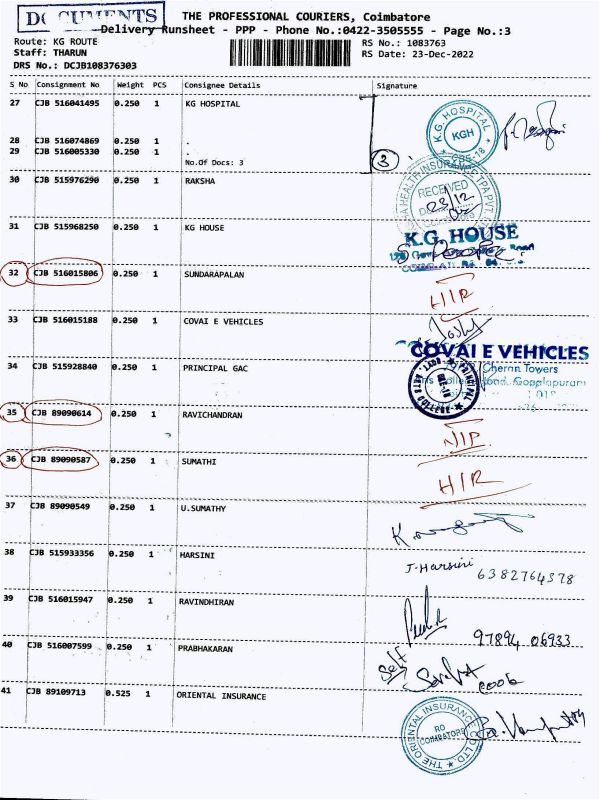 DOCUMENTS
THE PROFESSIONAL COURIERS, Coimbatore
Delivery Runsheet - PPP - Phone No.:0422-3505555 - Page No.:3
Route: KG ROUTE
Staff: THARUN
DRS No.: DCJB108376303
RS No.: 1083763
RS Date: 23-Dec-2022
S No Consignment No Weight PCS Consignee Details Signature
27 CJB 516041495 0.250 1 KG HOSPITAL
K.G. HOSPITAL
KGH
CBE-18
28 CJB 516074869 0.250 1 .
29 CJB 516005330 0.250 1 .
No.Of Docs: 3
3
30 CJB 515976290 0.250 1 RAKSHA
HEALTH INSURANCE TPA PVT.
RECEIVED
23/12
31 CJB 515968250 0.250 1 KG HOUSE
K.G. HOUSE
32 CJB 516015806 0.250 1 SUNDARAPALAN
H/R
33 CJB 516015188 0.250 1 COVAI E VEHICLES
COVAI E VEHICLES
Cheran Towers
Road, Gopalapuram
34 CJB 515928840 0.250 1 PRINCIPAL GAC
PRINCIPAL
ARTS COLLEGE
35 CJB 89090614 0.250 1 RAVICHANDRAN
36 CJB 89090587 0.250 1 SUMATHI
H/R
37 CJB 89090549 0.250 1 U.SUMATHY
38 CJB 515933356 0.250 1 HARSINI
J.Harsini 6382764378
39 CJB 516015947 0.250 1 RAVINDHIRAN
97894 06933
40 CJB 516007599 0.250 1 PRABHAKARAN
Self
41 CJB 89109713 0.525 1 ORIENTAL INSURANCE
THE ORIENTAL INSURANCE CO LTD
RO
COIMBATORE